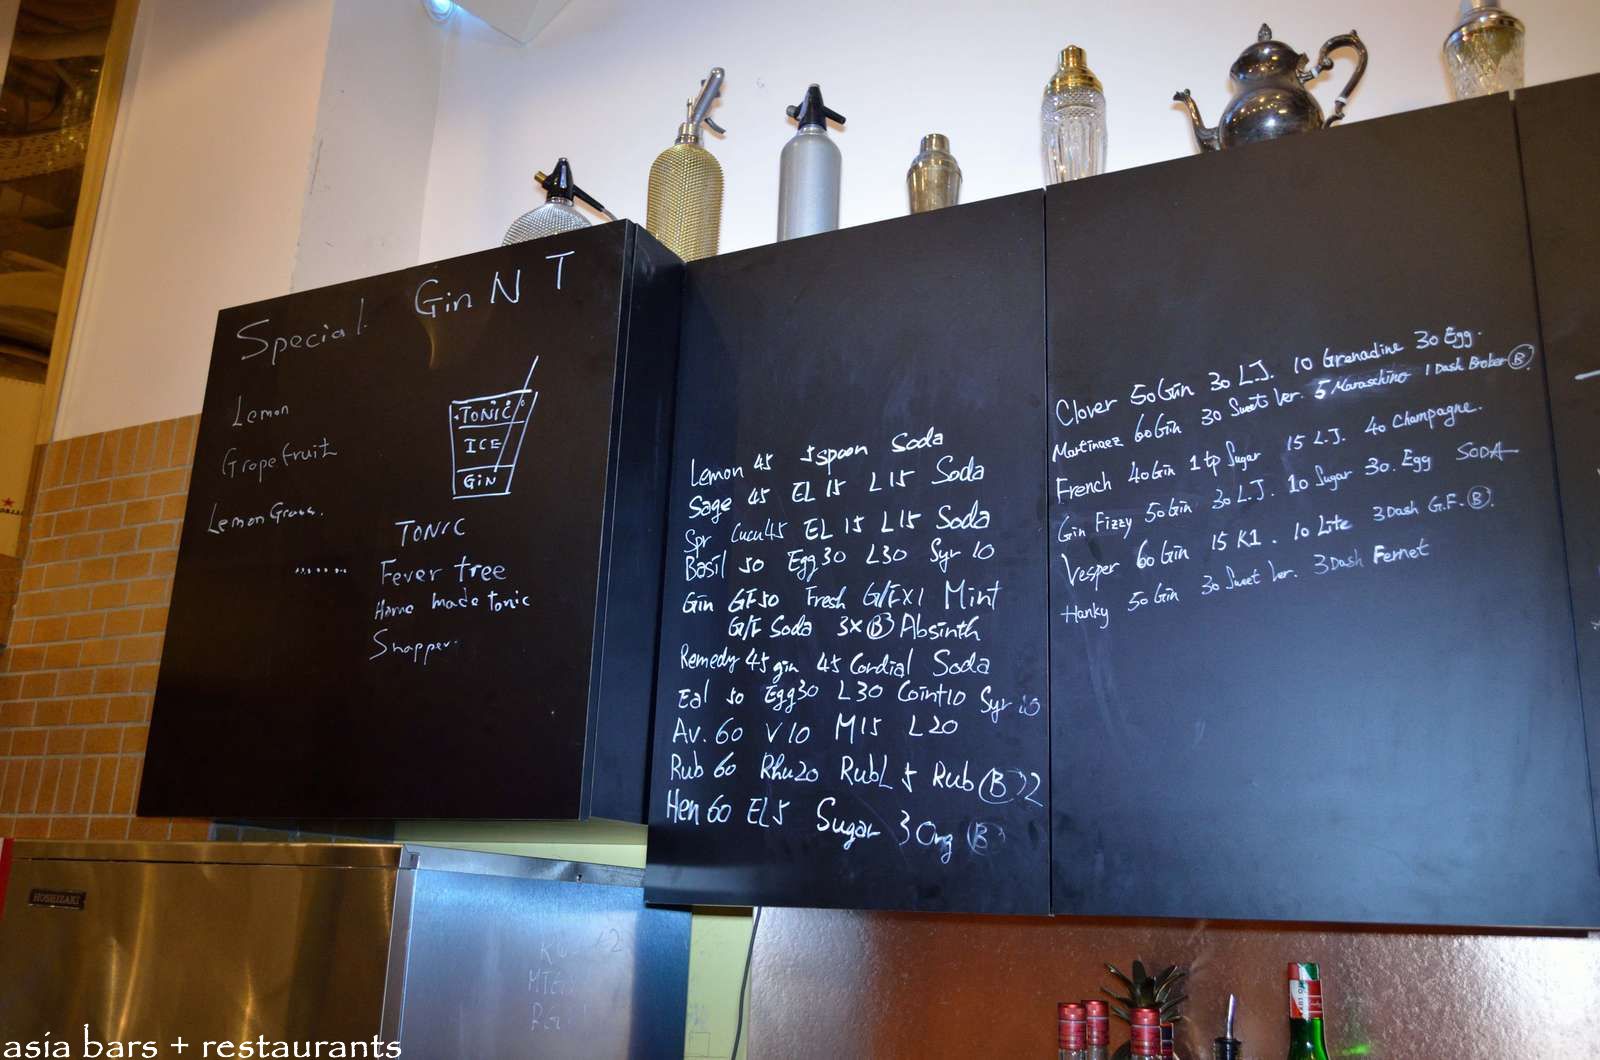 Special Gin N T
Lemon
Grapefruit
Lemon Grass.
TONIC
ICE
GIN
TONIC
Fever tree
Home made tonic
Snapper.
Lemon 45 5spoon Soda
Sage 45 EL 15 L15 Soda
Spr Cucu45 EL 15 L15 Soda
Basil 50 Egg30 L30 Syr 10
Gin GF50 Fresh G/FX1 Mint
G/F Soda 3X B Absinth
Remedy 45 gin 45 Cordial Soda
Eal 50 Egg30 L30 Coint10 Syr 10
Av. 60 V10 M15 L20
Rub 60 Rhu20 RubL 5 Rub B 2
Hen 60 EL5 Sugar 3 Ong B
Clover 50Gin 30 L.J. 10 Grenadine 30 Egg.
Martinaez 60Gin 30 Sweet Ver. 5 Maraschino 1 Dash Broker B.
French 40Gin 1tp Sugar 15 L.J. 40 Champagne.
Gin Fizzy 50Gin 30 L.J. 10 Sugar 30. Egg SODA
Vesper 60 Gin 15 K1. 10 Lite 3Dash G.F. B.
Hanky 50 Gin 30 Sweet Ver. 3Dash Fernet
HOSHIZAKI
asia bars + restaurants